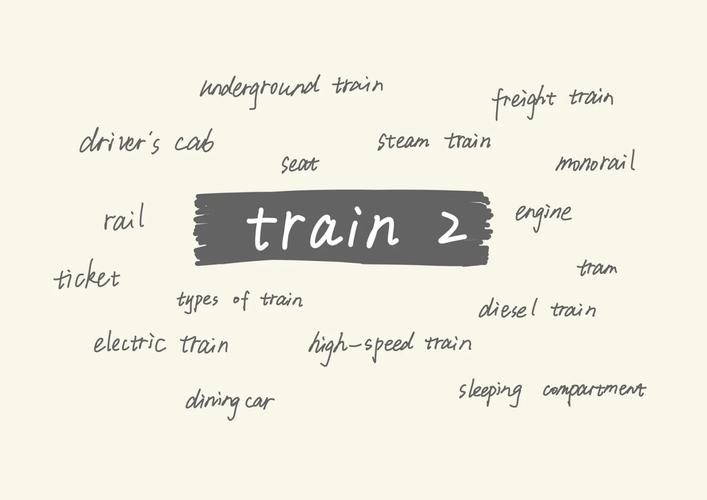 underground train
freight train
driver's cab
steam train
seat
monorail
rail
train 2
engine
ticket
tram
types of train
diesel train
electric train
high-speed train
dining car
sleeping compartment